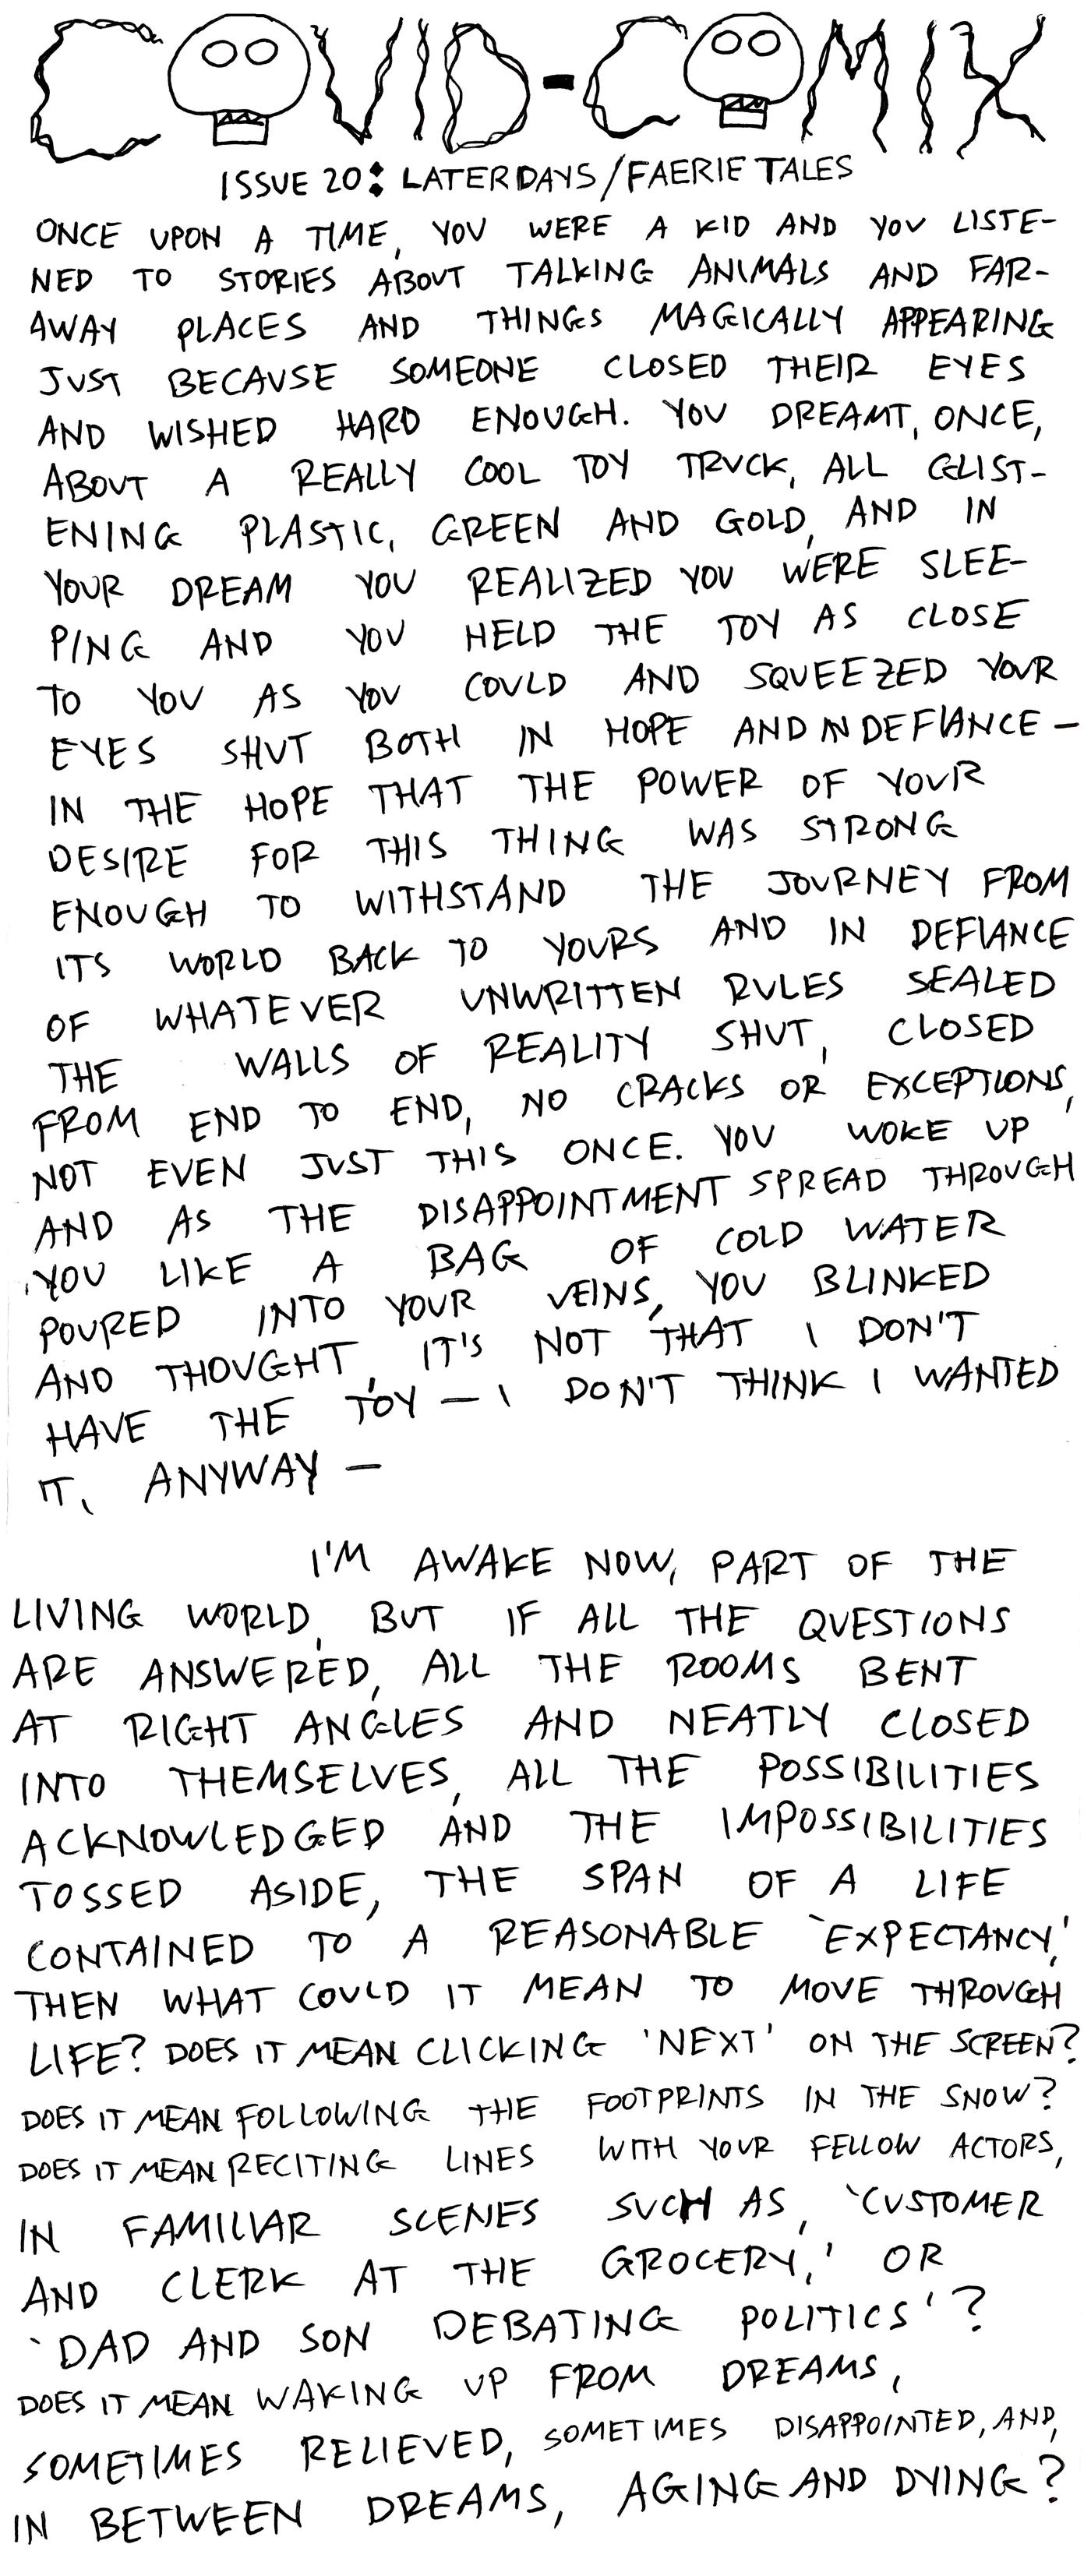 COVID-COMIX
ISSUE 20: LATER DAYS/FAERIE TALES
ONCE UPON A TIME, YOU WERE A KID AND YOU LISTE-
NED TO STORIES ABOUT TALKING ANIMALS AND FAR-
AWAY PLACES AND THINGS MAGICALLY APPEARING
JUST BECAUSE SOMEONE CLOSED THEIR EYES
AND WISHED HARD ENOUGH. YOU DREAMT, ONCE,
ABOUT A REALLY COOL TOY TRUCK, ALL GLIST-
ENING PLASTIC, GREEN AND GOLD, AND IN
YOUR DREAM YOU REALIZED YOU WERE SLEE-
PING AND YOU HELD THE TOY AS CLOSE
TO YOU AS YOU COULD AND SQUEEZED YOUR
EYES SHUT BOTH IN HOPE AND IN DEFIANCE —
IN THE HOPE THAT THE POWER OF YOUR
DESIRE FOR THIS THING WAS STRONG
ENOUGH TO WITHSTAND THE JOURNEY FROM
ITS WORLD BACK TO YOURS AND IN DEFIANCE
OF WHATEVER UNWRITTEN RULES SEALED
THE WALLS OF REALITY SHUT, CLOSED
FROM END TO END, NO CRACKS OR EXCEPTIONS,
NOT EVEN JUST THIS ONCE. YOU WOKE UP
AND AS THE DISAPPOINTMENT SPREAD THROUGH
YOU LIKE A BAG OF COLD WATER
POURED INTO YOUR VEINS, YOU BLINKED
AND THOUGHT, IT'S NOT THAT I DON'T
HAVE THE TOY — I DON'T THINK I WANTED
IT, ANYWAY —
I'M AWAKE NOW, PART OF THE
LIVING WORLD, BUT IF ALL THE QUESTIONS
ARE ANSWERED, ALL THE ROOMS BENT
AT RIGHT ANGLES AND NEATLY CLOSED
INTO THEMSELVES, ALL THE POSSIBILITIES
ACKNOWLEDGED AND THE IMPOSSIBILITIES
TOSSED ASIDE, THE SPAN OF A LIFE
CONTAINED TO A REASONABLE 'EXPECTANCY,'
THEN WHAT COULD IT MEAN TO MOVE THROUGH
LIFE? DOES IT MEAN CLICKING 'NEXT' ON THE SCREEN?
DOES IT MEAN FOLLOWING THE FOOTPRINTS IN THE SNOW?
DOES IT MEAN RECITING LINES WITH YOUR FELLOW ACTORS,
IN FAMILIAR SCENES SUCH AS, 'CUSTOMER
AND CLERK AT THE GROCERY,' OR
'DAD AND SON DEBATING POLITICS'?
DOES IT MEAN WAKING UP FROM DREAMS,
SOMETIMES RELIEVED, SOMETIMES DISAPPOINTED, AND,
IN BETWEEN DREAMS, AGING AND DYING?